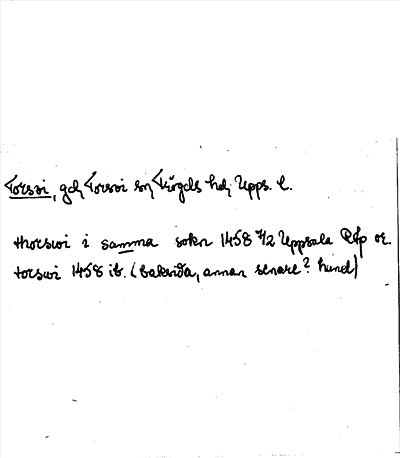 Torsvi, gd, Torsvi sn, Trögds hd, Upps. l.
thorswi i samma sokn 1458 7/2 Uppsala RAp or.
torswi 1458 ib. (baksida, annan senare? hand)